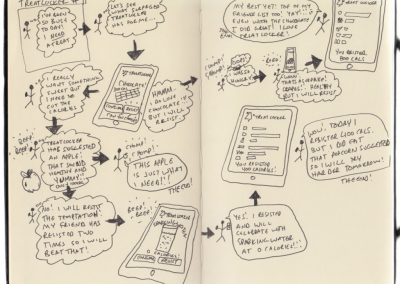 TREATLOCKER #1
I'VE BEEN
SO BUSY
TODAY!
I NEED
A TREAT
LET'S SEE
WHAT
TREATLOCKER
HAS FOR ME...
I REALLY
WANT SOMETHING
SWEET BUT
I HAVE NO
THE
CALORIES
TREATLOCKER
CHOCOLATE
HMMM..
I
CHOCOLATE
BUT I WILL
RESIST.
BEEP!
BEEP!
TREATLOCKER
HAS SUGGESTED
AN APPLE!
THAT SOUNDS
HEALTHY AND
YUMMY!
CHOMP
CHOMP!
THIS APPLE
IS JUST WHAT
I NEED!!
THE END!
NO! I WILL RESIST
THE TEMPTATION.
MY FRIEND HAS
RESISTED TWO
TIMES SO I WILL
BEAT THAT!
BEEP!
BEEP!
TREATLOCKER
SPARKLING
WATER
CALORIES
CONSUME
RESIST
MY BEST YET! TOP OF MY
FRIENDS LIST TOO! YAY!!!
EVEN WITH THE CHOCOLATE
I DID GREAT! I LOVE
TREATLOCKER!
TREATLOCKER
YOU RESISTED
800 CALS
CHOMP!
CHOMP!
OOPS!
I WAS SO
HUNGRY!
HEALTHY
BUT I WILL
RESIST!
TREATLOCKER
YOU RESISTED
400 CALORIES!
WOW! TODAY I
RESISTED 400 CALS.
BUT I DID EAT
THAT POPCORN SUGGESTED
SO I WILL TRY
HARDER TOMORROW!
THE END!
YES! I RESISTED
AND WILL
CELEBRATE WITH
SPARKLING WATER
AT 0 CALORIES!!!